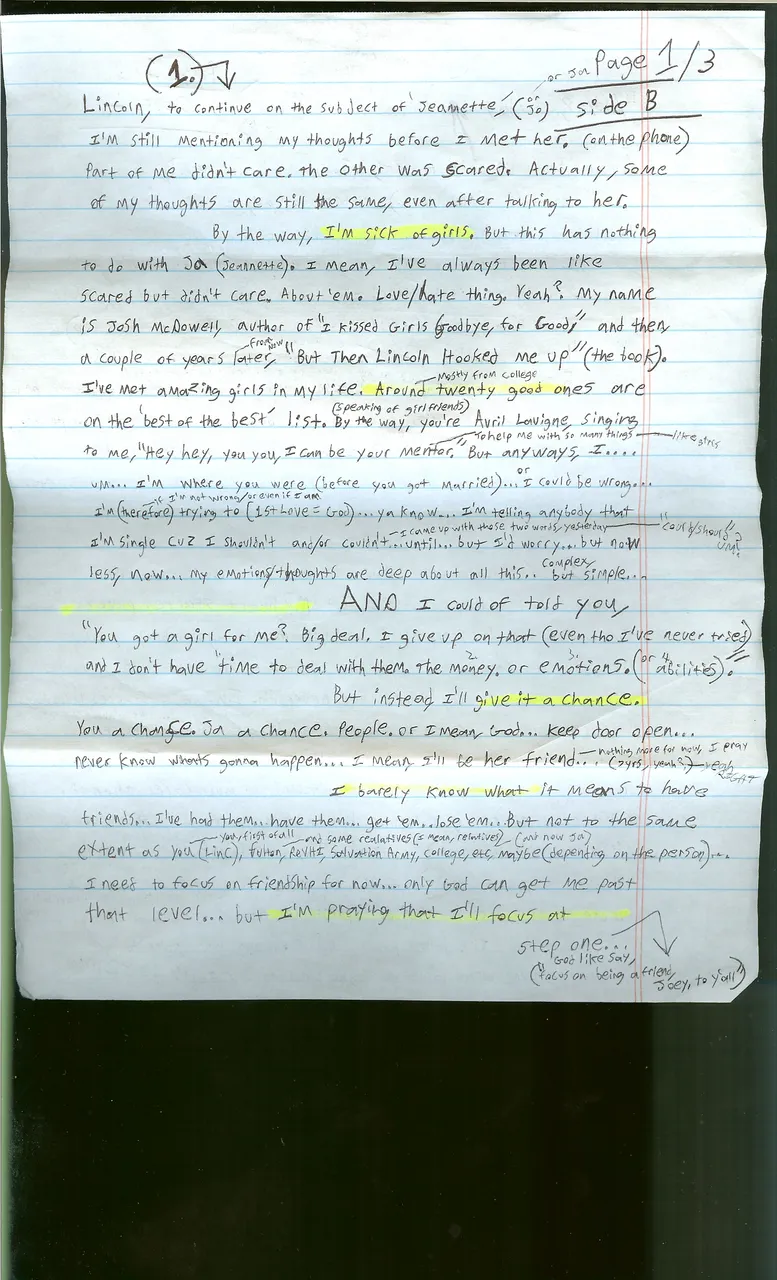 (1.) or Ja Page 1/3
Lincoln, to continue on the subject of 'Jeannette,' (or Ja) side B
I'm still mentioning my thoughts before I met her. (on the phone)
Part of me didn't care. The other was scared. Actually, some
of my thoughts are still the same, even after talking to her.
By the way, I'm sick of girls. But this has nothing
to do with Ja (Jeannette). I mean, I've always been like
scared but didn't care. About 'em. Love/hate thing. Yeah? My name
is Josh McDowell, author of "I kissed Girls Goodbye, for Good," and then
from now
a couple of years later, "But Then Lincoln Hooked me up" (the book).
mostly from college
I've met amazing girls in my life. Around twenty good ones are
(speaking of girlfriends)
on the 'best of the best' list. By the way, you're Avril Lavigne, singing
to help me with so many things like girls
to me, "Hey hey, you you, I can be your mentor." But anyways, I....
or
um... I'm where you were (before you got married)... I could be wrong...
if I'm not wrong/or even if I am
I'm (therefore) trying to (1st Love = God)... ya know... I'm telling anybody that
I came up with those two words, yesterday "could/should" um?
I'm single cuz I shouldn't and/or couldn't...until...but I'd worry...but now
complex,
less, now... my emotions/thoughts are deep about all this.. but simple...
AND I could of told you,
"You got a girl for me? Big deal. I give up on that (even tho I've never tried)
and I don't have time to deal with them. The money. or emotions. (or abilities)."
But instead I'll give it a chance.
You a chance. Ja a chance. People. or I mean, God... keep door open...
nothing more for now, I pray
never know whats gonna happen... I mean I'll be her friend... (3yrs, yeah?) yeah
I barely know what it means to have
friends... I've had them.. have them... get 'em.. lose 'em.. But not to the same
you, first of all and some realatives (I mean, relatives) (and now Ja)
extent as you (Linc), Fulton, RevHI, Salvation Army, college, etc, maybe (depending on the person)...
I need to focus on friendship for now... only God can get me past
that level... but I'm praying that I'll focus at
step one...
God like say,
("focus on being a friend,
Joey, to y'all")